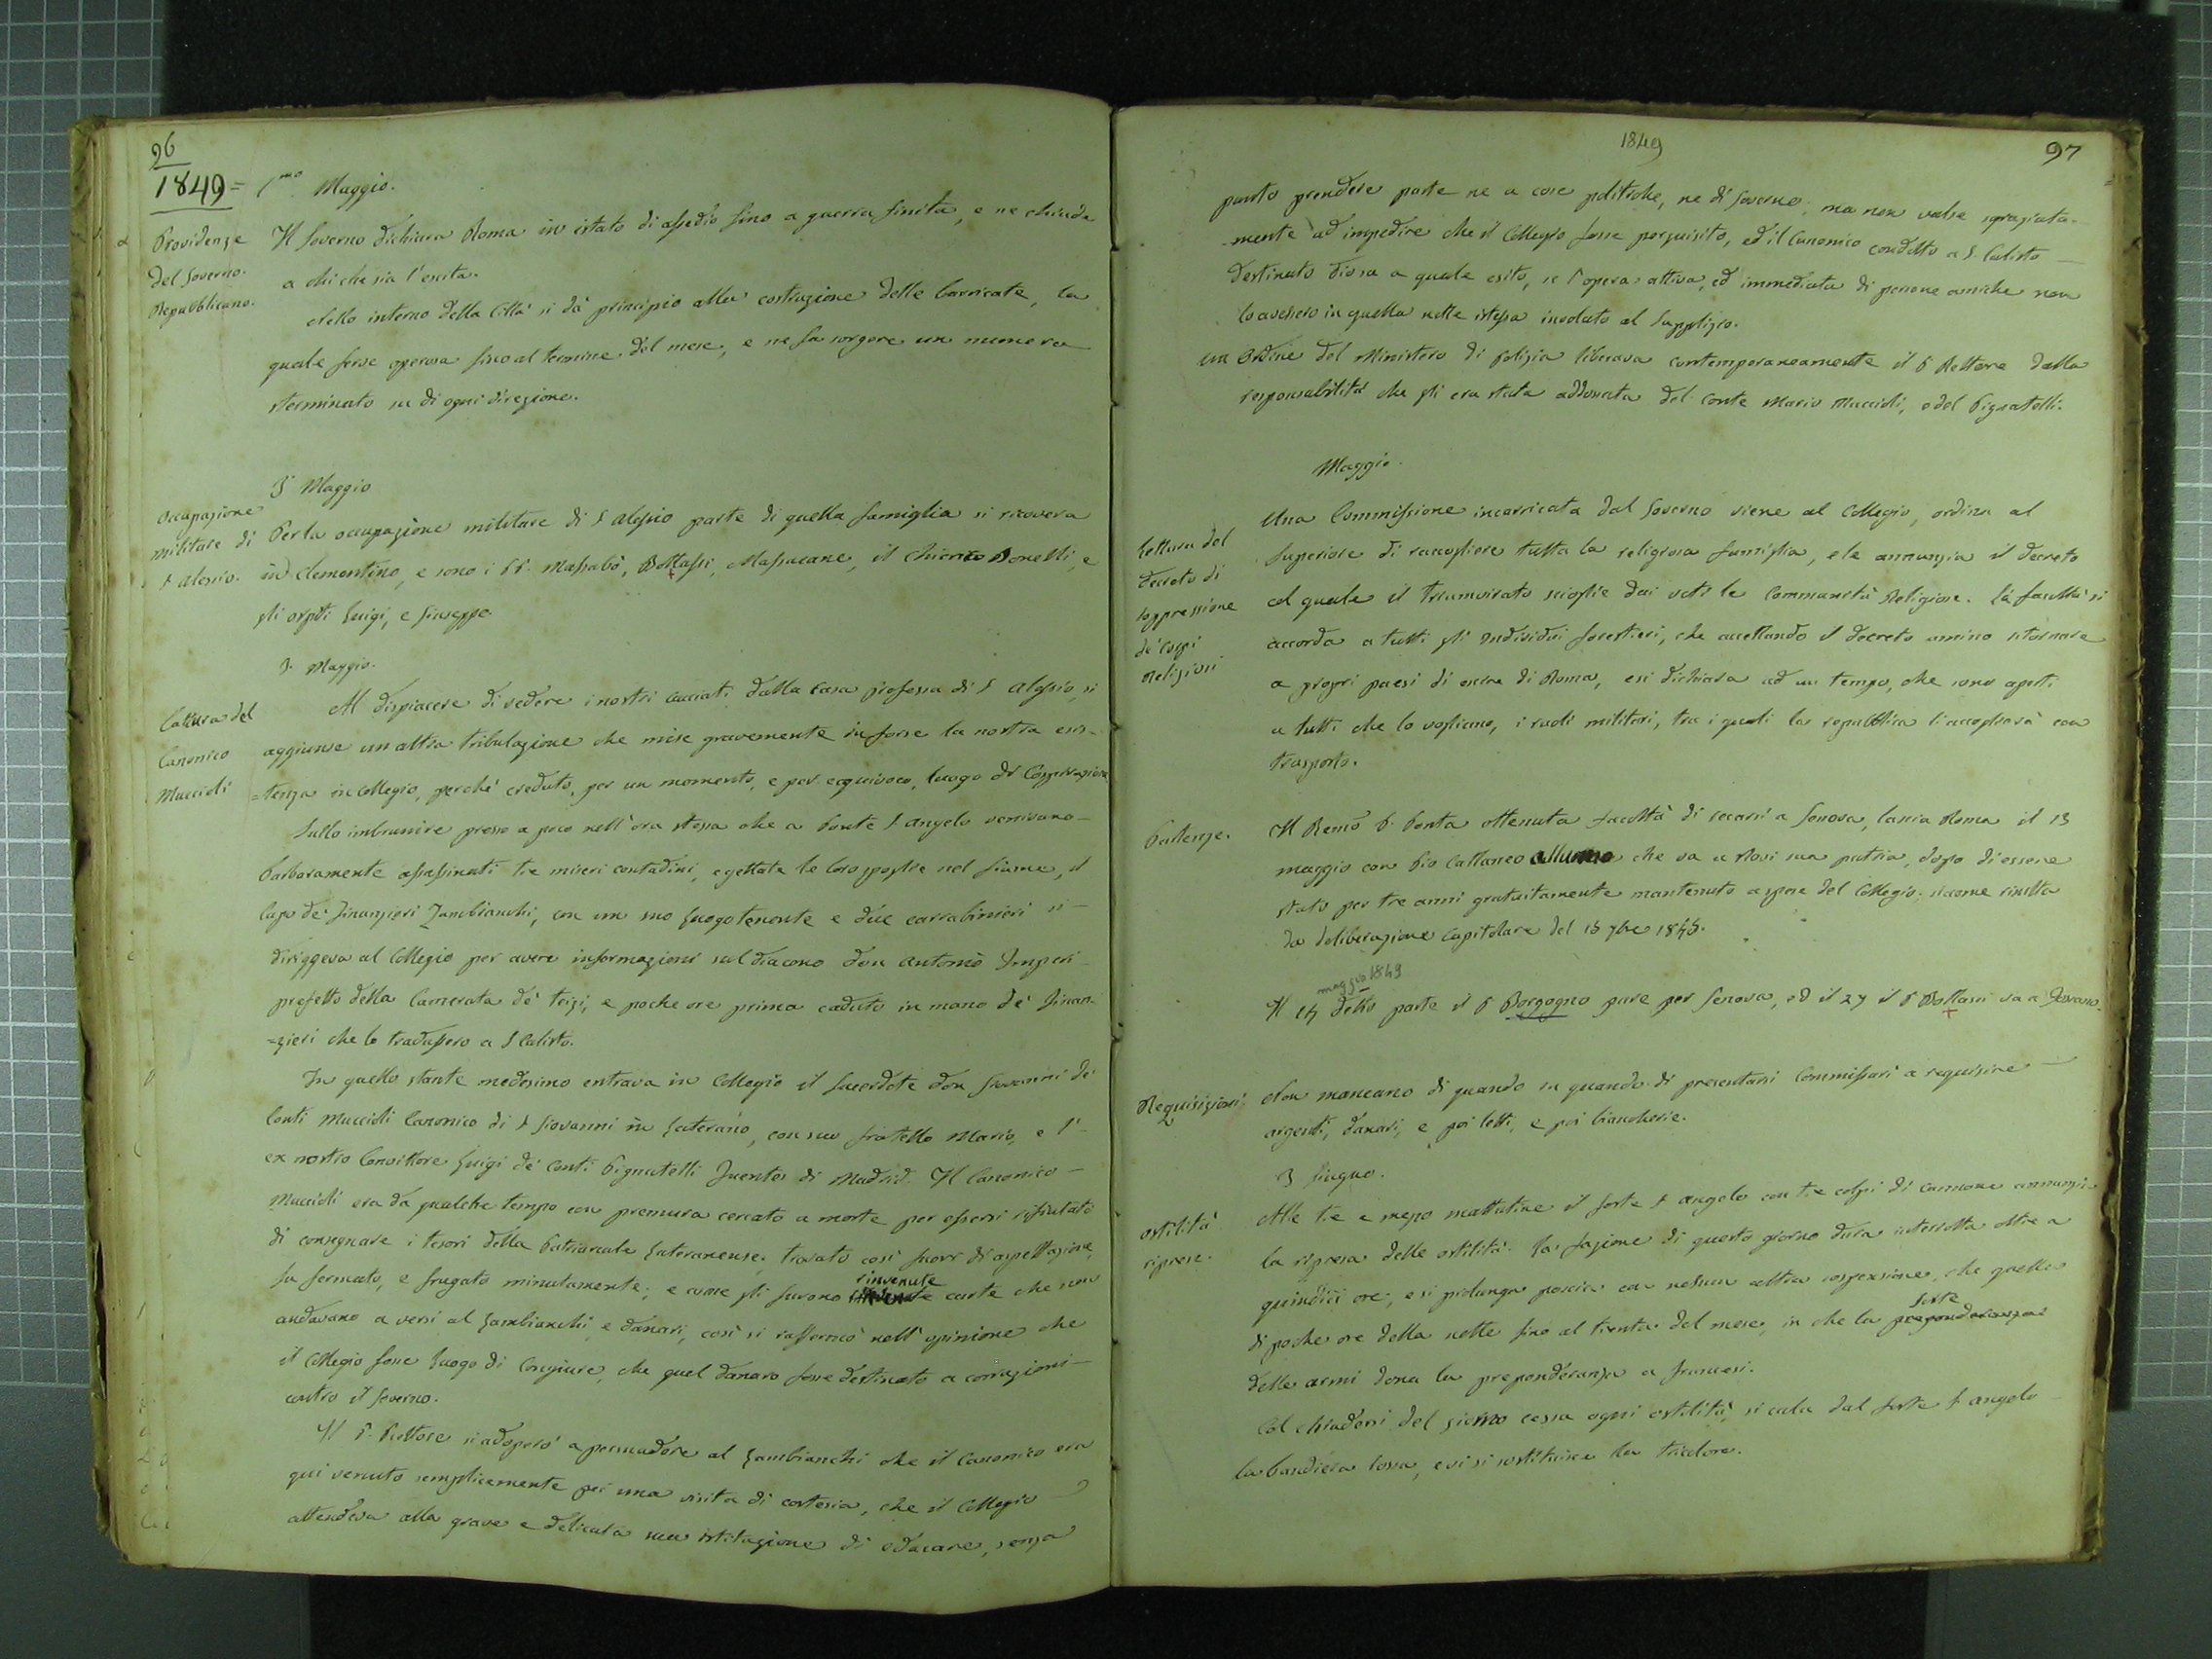 96
1849 = 1mo Maggio.
Providenze
del Governo.
Repubblicano.
Il Governo dichiara Roma in istato di assedio sino a guerra finita, e ne chiude
a chi che sia l'escita.
Nello interno della Città si dà principio alla costruzione delle barricate, la
quale ferve operosa sino al termine del mese, e ne fa sorgere un numero
sterminato su di ogni direzione.
3 Maggio
Occupazione
militare di
S Alessio.
Per la occupazione militare di S Alessio parte di quella famiglia si ricovera
in Clementino, e sono i PP. Massabò, Bottassi, Massucane, il Chierico Bonelli, e
gli ospiti Luigi, e Giuseppe
3. Maggio.
Cattura del
Canonico
Muccioli
Al dispiacere di vedere i nostri cacciati dalla Casa professa di S Alessio, si
aggiunse un altra tribulazione che mise gravemente in forse la nostra esis-
=tenza in Collegio, perchè creduto, per un momento, e per equivoco, luogo di Cospirazione
Sullo imbrunire presso a poco nell'ora stessa che a Ponte S Angelo venivano
barbaramente assassinati tre miseri contadini, e gettate le loro spoglie nel fiume, il
Capo de' Finanzieri Zambianchi, con un suo Luogotenente e due carrabinieri si
diriggeva al Collegio per avere informazioni sul diacono don Antonio Imperi
prefetto della Camerata de' terzi, e poche ore prima caduto in mano de' Finan-
=zieri che lo tradussero a S Calisto.
In quello stante medesimo entrava in Collegio il Sacerdote don Giovanni de'
Conti Muccioli Canonico di S Giovanni in Laterano, con suo fratello Mario, e l'
ex nostro Convittore Luigi de' Conti Pignatelli Fuentes di Madrid. Il Canonico
Muccioli era da qualche tempo con premura cercato a morte per essersi rifiutato
di consegnare i tesori della Patriarcale Lateranense; trovato così fuori di aspettazione,
fu fermato, e frugato minutamente; e come gli furono rinvenute carte che non
andavano a versi al Zambianchi, e danari, così si raffermò nell'opinione che
il Collegio fosse luogo di Congiure, che quel danaro fosse destinato a corruzioni
contro il Governo.
Il P. Rettore si adoperò a persuadere al Zambianchi che il Canonico era
qui venuto semplicemente per una visita di cortesia, che il Collegio
attendeva alla grave e delicata sua istituzione di educare, senza
1849
97
punto prendere parte ne a cose politiche, ne di Governo; ma non valse sgraziata-
mente ad impedire che il Collegio fosse perquisito, ed il Canonico condotto a S. Calisto
destinato Dio sa a quale esito, se l'opera attiva, ed immediata di persone amiche non
lo avessero in quella notte istessa involato al Supplizio.
un Ordine del Ministero di Polizia liberava contemporaneamente il P Rettore dalla
responsabilità che gli era stata addossata del Conte Mario Muccioli, e del Pignatelli.
Maggio.
Lettura del
decreto di
soppressione
de' Corpi
Religiosi
Una Commissione incarricata dal Governo viene al Collegio, ordina al
Superiore di raccogliere tutta la religiosa famiglia, e le annunzia il decreto
col quale il Triumvirato scioglie dai voti le Communità Religiose. La facoltà si
accorda a tutti gli individui forestieri, che accettando il decreto amino ritornare
a propri paesi di escire di Roma, e si dichiara ad un tempo, che sono aperti
a tutti che lo vogliano, i ruoli militari, tra i quali la repubblica li accoglierà con
trasporto.
Partenze.
Il Remo P. Ponta ottenuta facoltà di recarsi a Genova, lascia Roma il 13
maggio con Pio Cattaneo alluno che va a Novi sua patria, dopo di essere
stato per tre anni gratuitamente mantenuto a spese del Collegio; siccome risulta
da deliberazione Capitolare del 15 9bre 1845.
maggio 1849
Il 14 detto parte il P Borgogno pure per Genova, ed il 27 il P Bottassi va a
Requisizioni
Non mancano di quando in quando di presentarsi Commissari a requisire
argenti, danari, e poi letti, e poi biancherie.
3 Giugno.
ostilità
riprese.
Alle tre e mezzo mattutine il forte S Angelo con tre colpi di cannone annunzia
la ripresa delle ostilità. La fazione di questo giorno dura interrotta oltre a
quindici ore; e si prolunga poscia con nessun altra sospensione, che quella
di poche ore della notte sino al trenta del mese, in che la preponderanza sorte
delle armi dona la preponderanza a francesi.
Col chiudersi del giorno cessa ogni ostilità, si cala dal forte S Angelo
la bandiera rossa, e vi si sostituisce la tricolore.